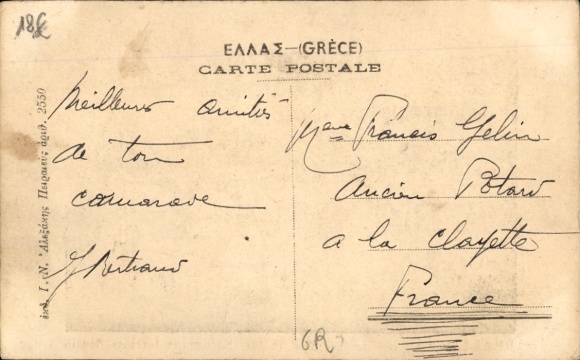 18€
ΕΛΛΑΣ—(GRÈCE)
CARTE POSTALE
Meilleures amitiés
de ton
camarade
Bertrand
Francis Gelin
Ancien Potard
a la Clayette
France
ἐκδ. Ι. Ν. Ἀλεξάκης Πειραιεὺς ἀριθ. 2550